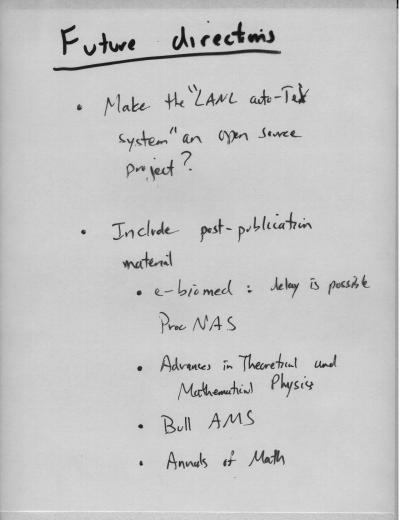 Future directions
• Make the "LANL auto-TeX
system" an open source
project?
• Include post-publication
material
• e-biomed : delay is possible
Proc NAS
• Advances in Theoretical and
Mathematical Physics
• Bull AMS
• Annals of Math